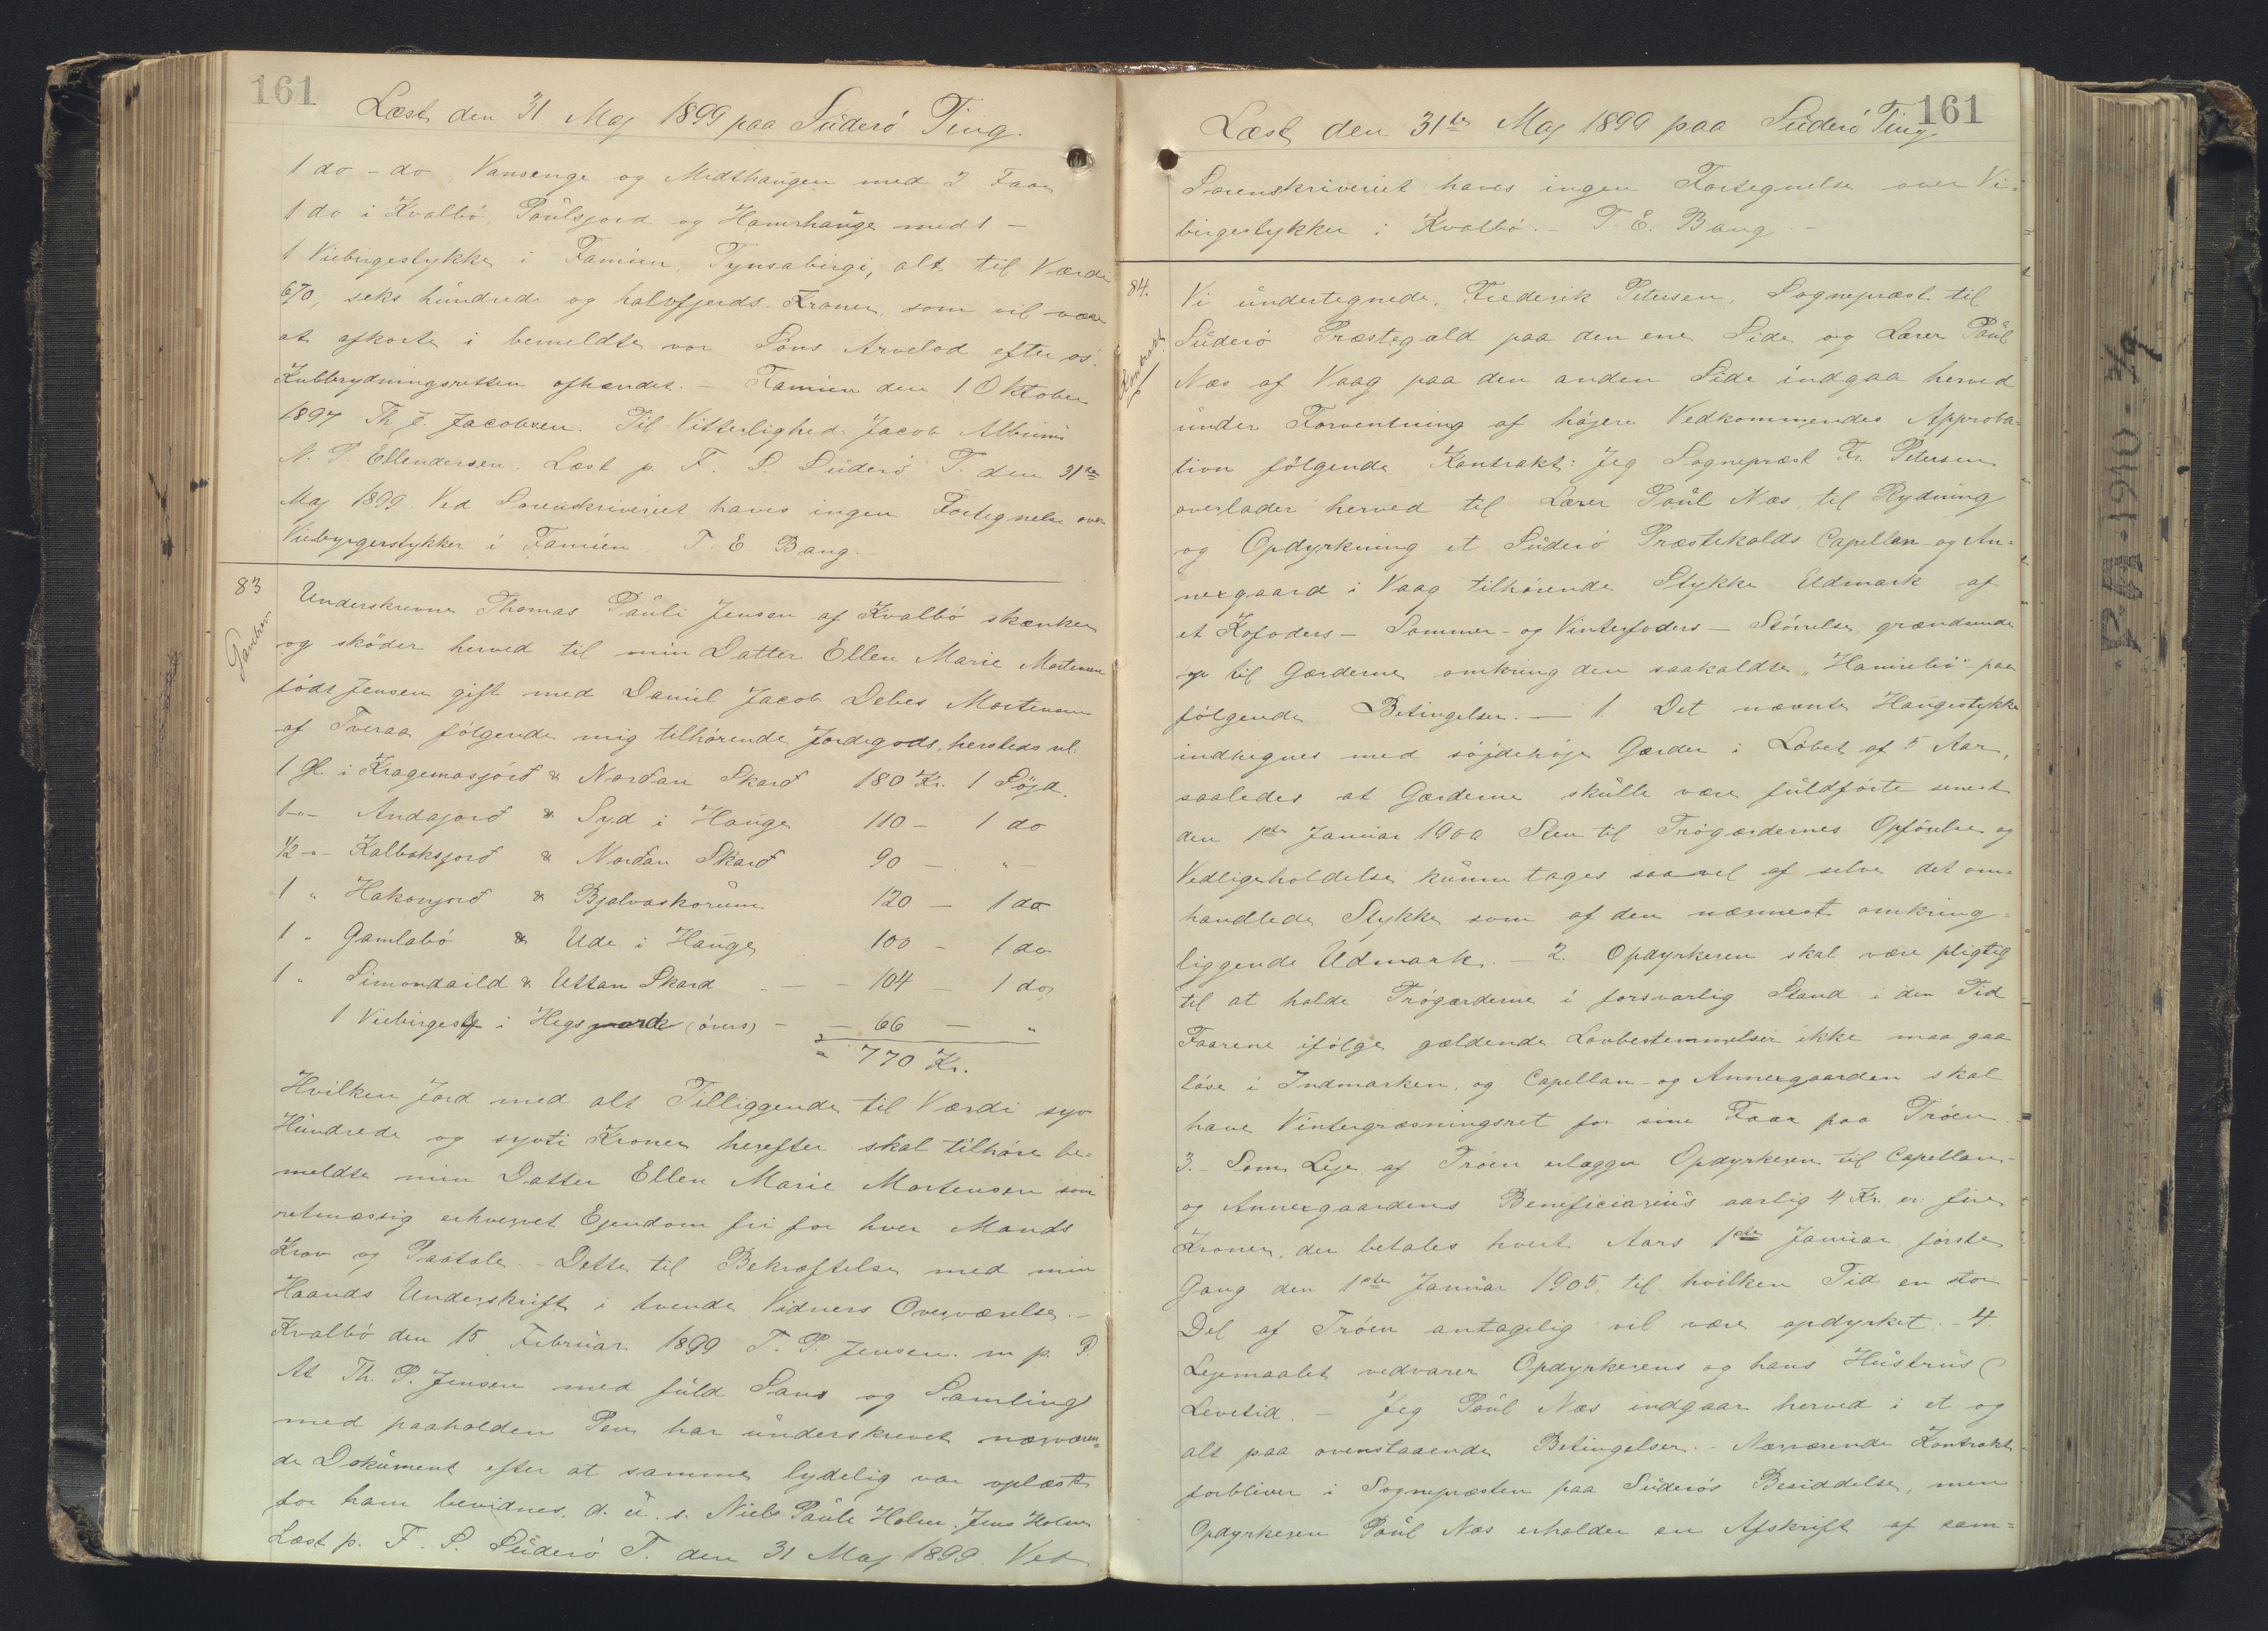 161
Læst den 31 Maj 1899 paa Süderö Ting.
1 do - do Vansenge og Midthaugen med 2 Faar
1 do i Kvalbö, Poulsjord og Hamrhauge med 1 -
1 Viebirgestykke i Famien, Tynsabirgi, alt til Værdi
670, seks hundrede og halvfjerds Kroner, som vil være
at afkorte i bemeldte vor Söns Arvelod efter os.
Kubbrydningsretten afhændet. - Famien den 1 Oktober
1897 Th. J. Jacobsen. Til Vitterlighed. Jacob Albinus
N. P. Ellendersen. Læst p. F. S. Süderö T. den 31te
Maj 1899. Ved Sorenskriveriet haves ingen Fortegnelse over
Viebyrgerstykker i Famien T. E Bang.
83
Gavebrev
Underskrevne Thomas Pauli Jensen af Kvalbö skænker
og sköder herved til min Datter Ellen Marie Mortensen
födt Jensen gift med Daniel Jacob Debes Mortensen
af Tveraa fölgende mig tilhörende Jordegods, hersteds nl.
1 Gl. i Kragemasjörð & Norðan Skarð 180 Kr. 1 Söjd.
1 -"- Andajorð & Syd i Hauge 110 - 1 do
1/2 -"- Kalbaksjorð & Norðan Skarð 90 - " -
1 " Hakonjorð & Bjalvaskorum 120 - 1 do
1 " Gamlabö & Ude i Hauge 100 - 1 do
1 " Simondaild & Uttan Skard - - 104 - 1 do
1 Viebirgest i (övers) - - 66 - "
= 770 Kr.
Hvilken Jord med alt Tilliggende til Værdi syv
Hundrede og syvti Kroner herefter skal tilhöre be-
meldte min Datter Ellen Marie Mortensen som
retmæssig erhvervet Ejendom fri for hver Mands
Krav og Paatale. - Dette til Bekræftelse med min
Haands Underskrift i tvende Vidners Overværelse. -
Kvalbö den 15 Februar 1899 T. P. Jensen. m p. P.
At Th. P. Jensen med fuld Sans og Samling
med paaholden Pen har underskrevet nærværen=
de Dokument efter at samme lydelig var oplæst
for ham bevidnes. d. u. s. Niels Pauli Holm. Jens Holm
Læst p. F. S. Süderö T. den 31 Maj 1899. Ved
161
Læst den 31te Maj 1899 paa Süderö Ting
Sorenskriveriet haves ingen Fortegnelse over Vi-
birgestykker i Kvalbö. - T. E. Bang. -
84.
Kontrakt
Vi undertegnede, Frederik Petersen, Sognepræst til
Süderö Præstegæld paa den ene Side og Lærer Poul
Næs af Vaag paa den anden Side indgaa herved
under Forventning af højere Vedkommendes Approba-
tion fölgende Kontrakt: Jeg Sognepræst Fr. Petersen
overlader herved til Lærer Poul Næs til Rydning
og Opdyrkning et Süderö Præstekalds Capellan- og An=
nexgaard i Vaag tilhörende Stykke Udmark af
et Kofoders - Sommer- og Vinterfoders - Störrelse, grændsende
op til Gærderne omkring den saakaldte "Hamrebö" paa
fölgende Betingelser. - 1. Det nævnte Haugestykke
indhegnes med söjdehöje Gærder i Löbet af 5 Aar,
saaledes at Gærderne skulle være fuldförte senest
den 1ste Januar 1900 Sten til Trögærdernes Opförelse og
Vedligeholdelse kunne tages saavel af selve det om=
handlede Stykke som af den nærmest omkring=
liggende Udmark. - 2. Opdyrkeren skal være pligtig
til at holde Trögærderne i forsvarlig Stand i den Tid
Faarene ifölge gældende Lovbestemmelser ikke maa gaa
löse i Indmarken, og Capellan- og Annexgaarden skal
have Vintergræsningsret for sine Faar paa Tröen.
3. - Som Leje af Tröen erlægger Opdyrkeren til Capellan-
og Annexgaardens Beneficiarius aarlig 4 Kr. er: fire
Kroner, der betales hvert Aars 1ste Januar förste
Gang den 1ste Januar 1905, til hvilken Tid en stor
Del af Tröen antagelig vil være opdyrket. - 4.
Lejemaalet vedvarer Opdyrkerens og hans Hustrus
Levetid. - Jeg Poul Næs indgaar herved i et og
alt paa ovenstaaende Betingelser. - Nærværende Kontrakt
forbliver i Sognepræsten paa Süderös Besiddelse, men
Opdyrkeren Poul Næs erholder en Afskrift af sam=